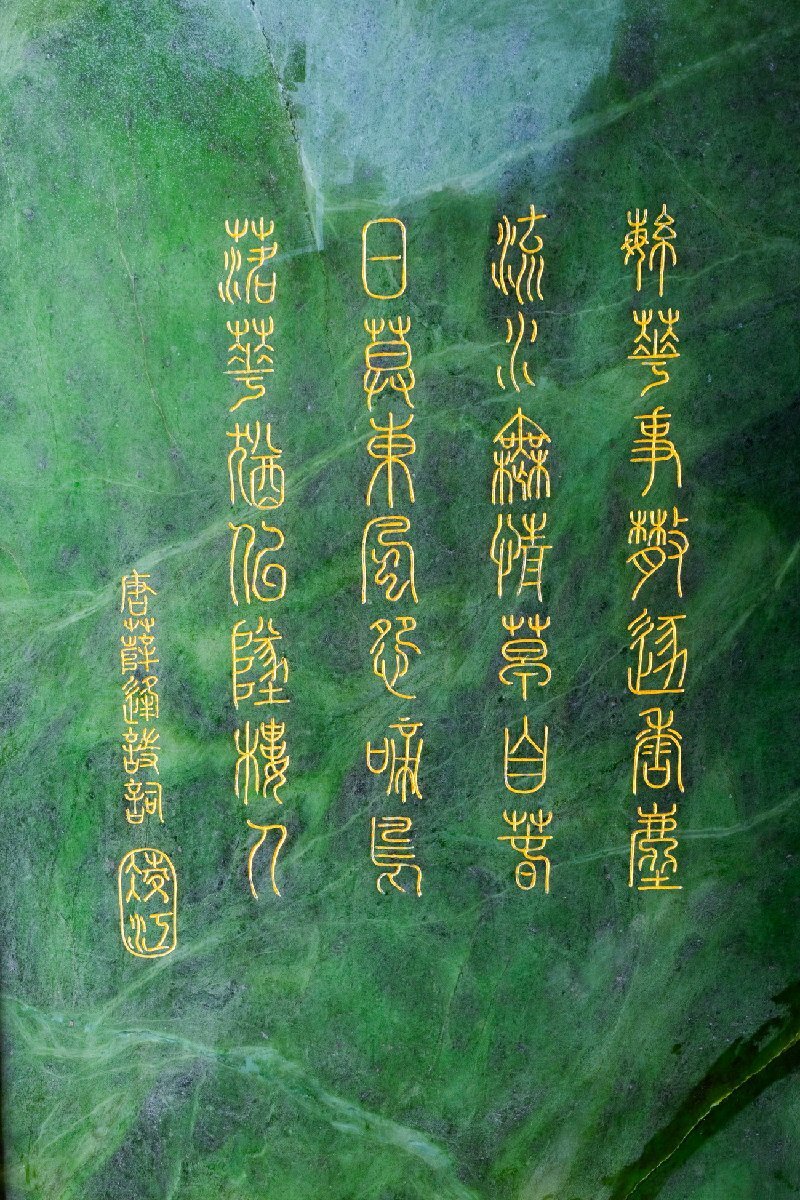 緐華事散逐香塵
流水無情草自春
日莫東風怨啼鳥
落華猶佀墜樓人
唐薛逢詩詞